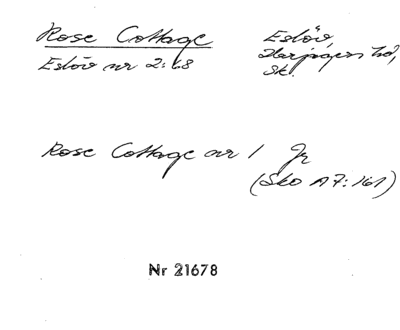 Rose Cottage
Eslöv nr 2:68
Eslöv,
Harjagers hd,
Sk.
Rose Cottage nr 1 Jr
(Sko A7:161)
Nr 21678